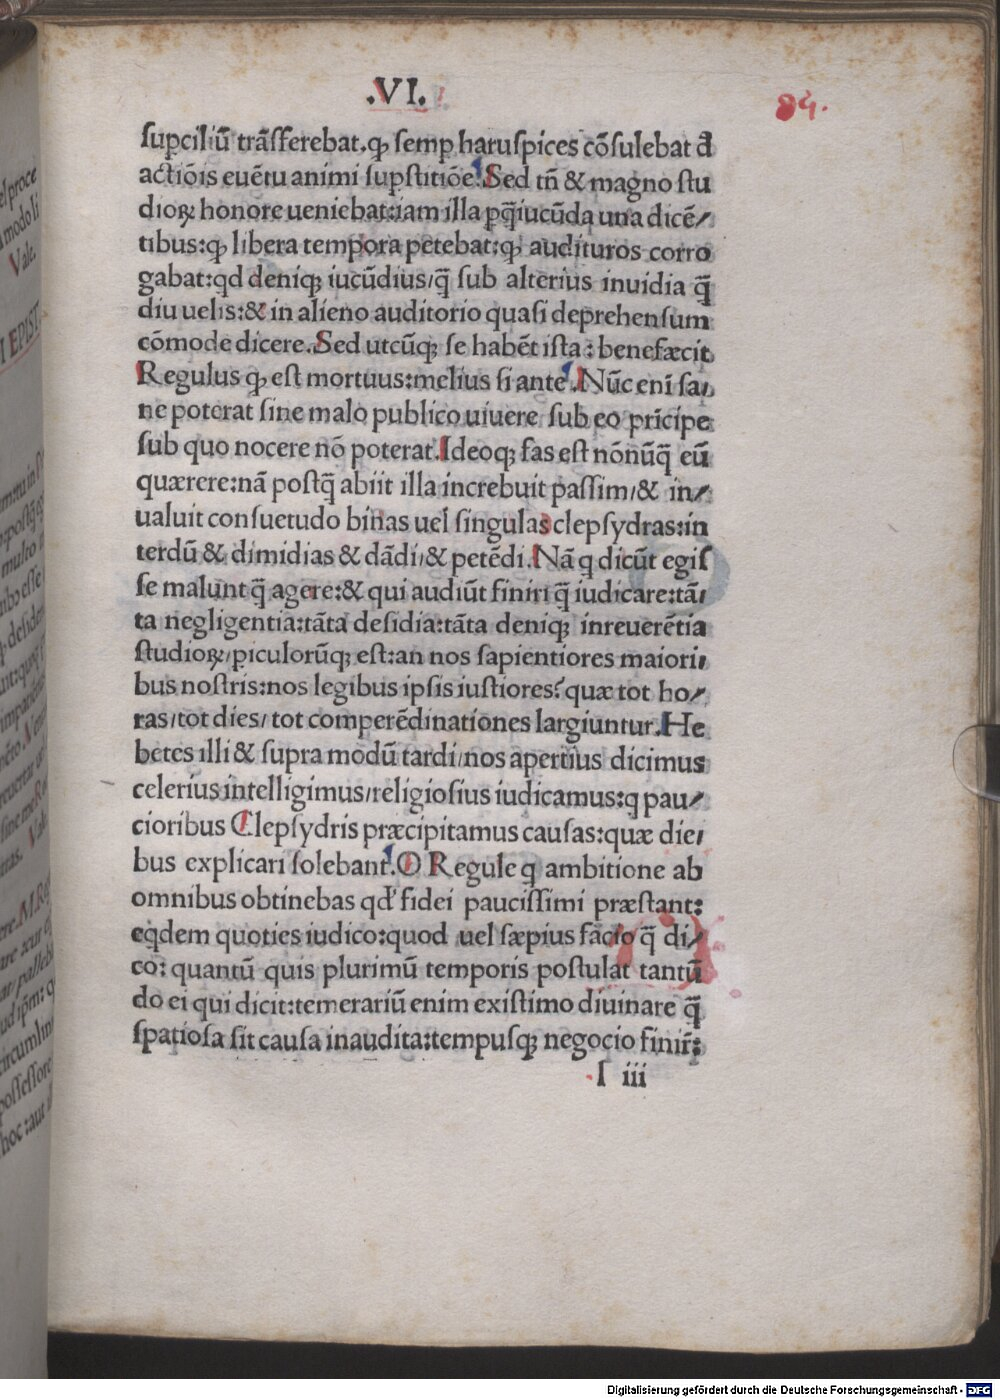 .VI.
84.
ſupciliū trāſferebat.ꝙ ſemp haruſpices cōſulebat đ
actiōis euētu animi ſupſtitiōe. Sed tñ & magno ſtu
dioꝝ honore ueniebat:iam illa pq̄iucūda una dicē/
tibus:ꝙ libera tempora petebat:ꝙ audituros corro
gabat:qd deniqꝫ iucūdius/q̄ ſub alterius inuidia q̄
diu uelis:& in alieno auditorio quaſi deprehenſum
cōmode dicere.Sed utcūqꝫ ſe habēt iſta:benefæcit
Regulus ꝙ eſt mortuus:melius ſi ante.Nūc eni ſa/
ne poterat ſine malo publico uiuere ſub eo prīcipe
ſub quo nocere nō poterat.Ideoqꝫ fas eſt nōnūq̄ eū
quærere:nā poſtq̄ abiit illa increbuit paſſim/& in/
ualuit conſuetudo binas uel ſingulas clepſydras:in
terdū & dimidias & dādi/& petēdi.Nā q dicūt egiſ
ſe malunt q̄ agere:& qui audiūt finiri q̄ iudicare:tā/
ta negligentia:tāta deſidia:tāta deniqꝫ inreuerētia
ſtudioꝝ/piculorūqꝫ eſt:an nos ſapientiores maiori/
bus noſtris:nos legibus ipſis iuſtiores?quæ tot ho/
ras/tot dies/tot comperēdinationes largiuntur.He
betes illi & ſupra modū tardi/nos apertius dicimus
celerius intelligimus/religioſius iudicamus:q pau/
cioribus Clepſydris præcipitamus cauſas:quæ die/
bus explicari ſolebant.O Regule q ambitione ab
omnibus obtinebas qd' fidei pauciſſimi præſtant:
eqdem quoties iudico:quod uel ſæpius facio q̄ di/
co: quantū quis plurimū temporis poſtulat tantū
do ei qui dicit:temerariū enim exiſtimo diuinare q̄
ſpatioſa ſit cauſa inaudita:tempuſqꝫ negocio finir̄:
l iii
Digitalisierung gefördert durch die Deutsche Forschungsgemeinschaft - DFG